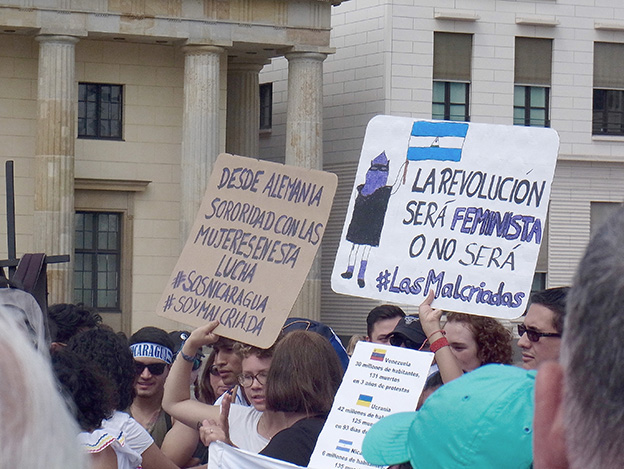 DESDE ALEMANIA
SORORIDAD CON LAS
MUJERES EN ESTA
LUCHA
#SOSNICARAGUA
#SOYMALCRIADA
LA REVOLUCIÓN
SERÁ FEMINISTA
O NO SERÁ
#LasMalcriadas
NICARAGUA
Venezuela
30 millones de habitantes,
131 muertes
en 3 años de protestas
Ucrania
42 millones de habitantes,
en 93 días